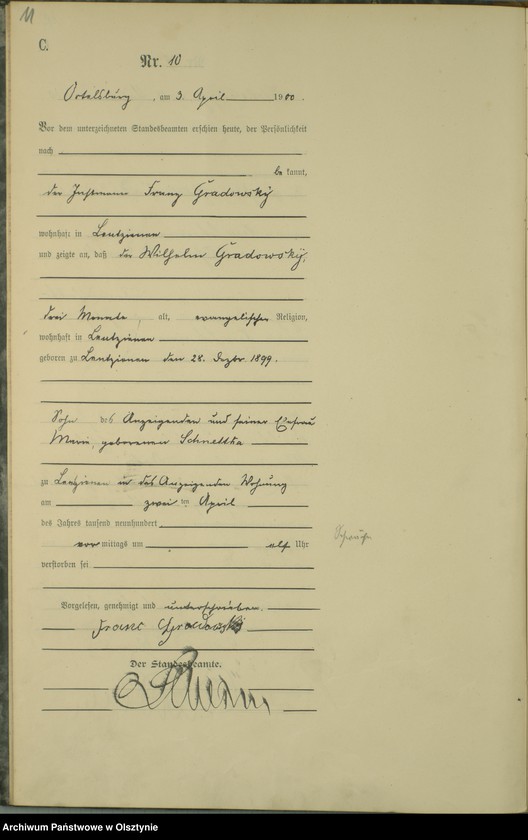 11
C.
Nr. 10
Ortelsburg, am 3. April 1900.
Vor dem unterzeichneten Standesbeamten erschien heute, der Persönlichkeit
nach
bekannt,
der Instmann Franz Gradowsky
wohnhaft in Leutzienen
und zeigte an, daß der Wilhelm Gradowsky,
drei Monate, alt, evangelischer Religion,
wohnhaft in Leutzienen
geboren zu Leutzienen den 28. Dezbr. 1899.
Sohn des Anzeigenden und seiner Ehefrau
Marie, geborenen
zu Leutzienen in des Anzeigenden Wohnung
am zwei ten April
des Jahres tausend neunhundert
vormittags um elf Uhr
verstorben sei
Schwäche
Vorgelesen, genehmigt und unterschrieben.
Franz Gradowski
Der Standesbeamte.
Archiwum Państwowe w Olsztynie